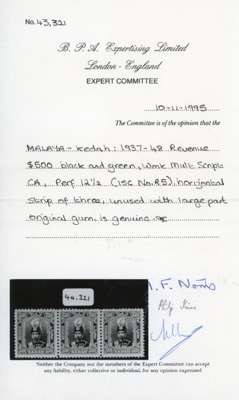 No. 43,321
B. P. A. Expertising Limited
London - England
EXPERT COMMITTEE
10-11-1995
The Committee is of the opinion that the
MALAYA - Kedah: 1937-48 Revenue
$500 black and green, Wmk Mult Script
CA, Perf 12½ (ISC No. R5), horizontal
strip of three, unused with large part
original gum, is genuine
44,321
Neither the Company nor the members of the Expert Committee can accept
any liability, either collective or individual, for any opinion expressed